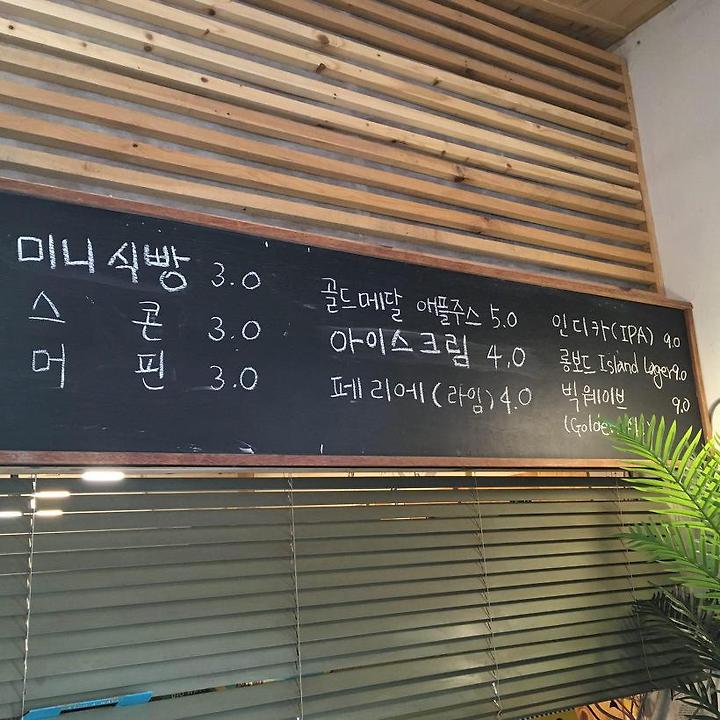 미니식빵 3.0
스 콘 3.0
머 핀 3.0
골드메달 애플주스 5.0
아이스크림 4.0
페리에(라임) 4.0
인디카(IPA) 9.0
롱보드 Island Lager 9.0
빅웨이브 9.0